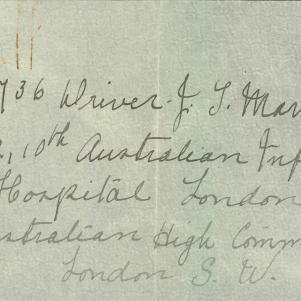 736 Driver J. S. Mar
10th Australian Inf
Hospital London
stralian High Comm
London S. W.